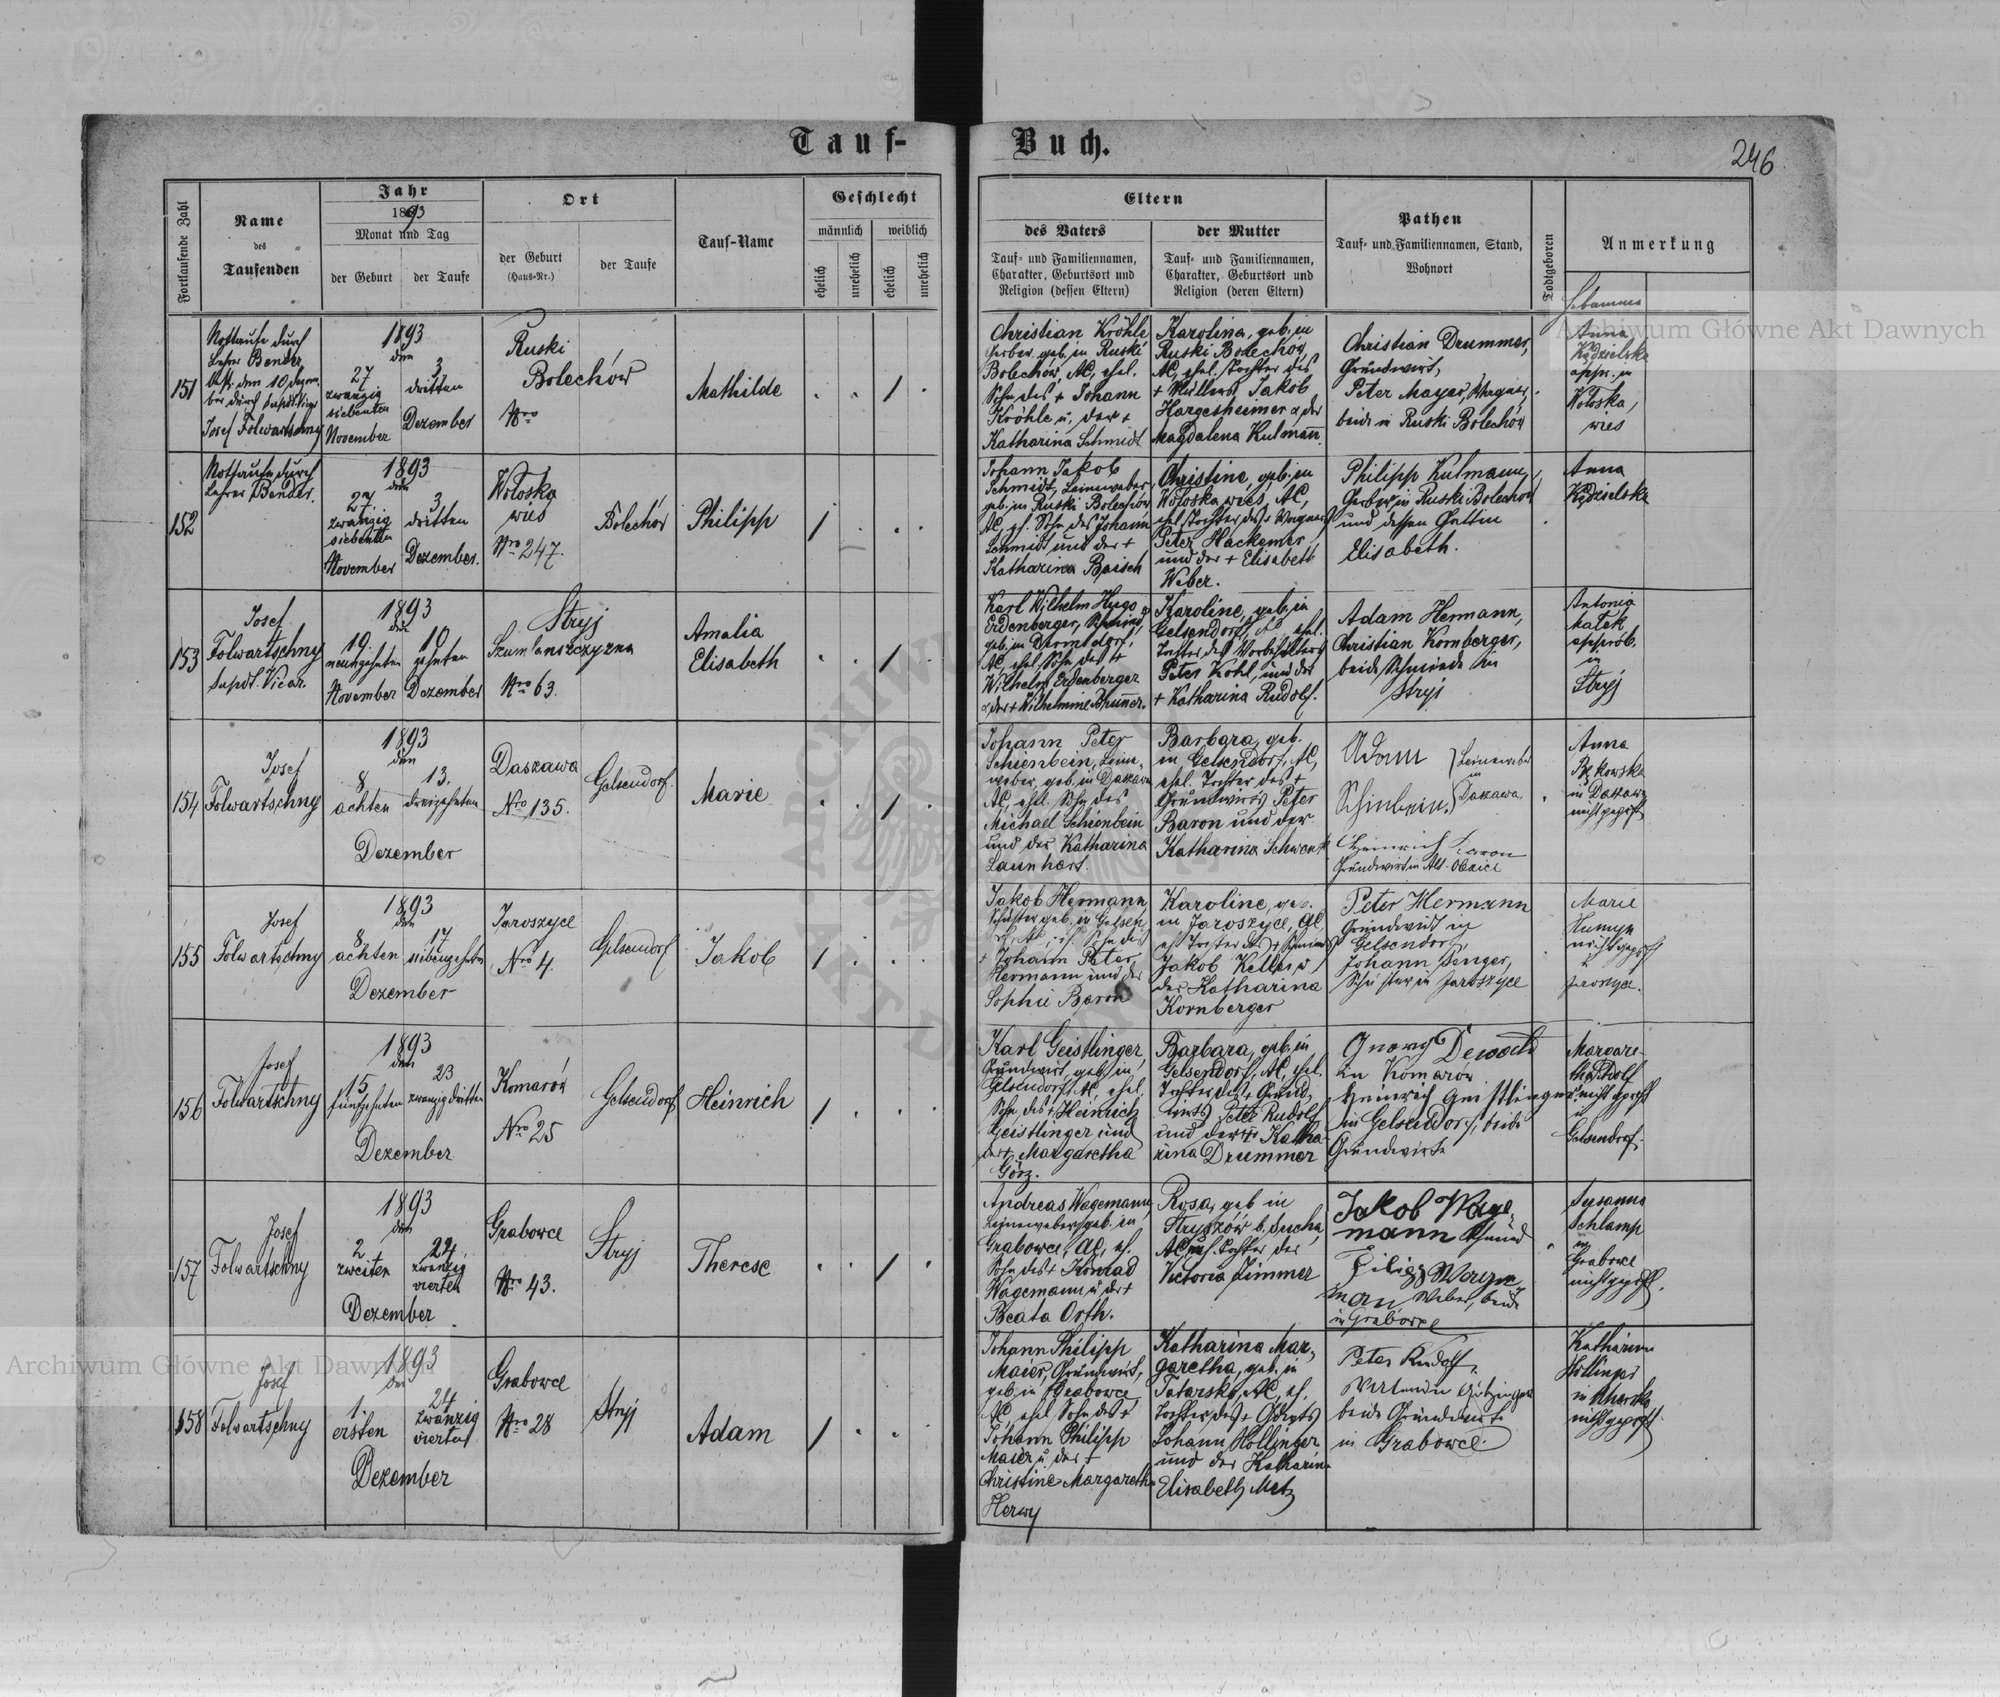 Tauf-
Buch.
246
Fortlaufende Zahl
Name
des
Taufenden
Jahr
1893
Monat und Tag
der Geburt
der Taufe
Ort
der Geburt
(Haus-Nr.)
der Taufe
Tauf-Name
Geschlecht
männlich
weiblich
ehelich
unehelich
ehelich
unehelich
Eltern
des Vaters
Tauf- und Familiennamen,
Charakter, Geburtsort und
Religion (dessen Eltern)
der Mutter
Tauf- und Familiennamen,
Charakter, Geburtsort und
Religion (deren Eltern)
Pathen
Tauf- und Familiennamen, Stand,
Wohnort
Todtgeboren
Anmerkung
151
Nottaufe durch
Lehrer Bender
den 10 Dezem-
ber durch
Josef Folwartschny
1893
den
27
zwanzig
siebenten
November
3
dritten
Dezember
Ruski
Bolechów
Nro
Mathilde
Christian Kröhle
Gerber, geb. in Ruski
Bolechów, AC, ehel.
Sohn des + Johann
Kröhle u. der +
Katharina Schmidt
Karolina, geb. in
Ruski Bolechów,
AC, ehel. Tochter des
+ Müllers Jakob
Hargesheimer & der
Magdalena Kulmann.
Christian Drummer,
Grundwirt,
Peter Mayer, Wagner,
beide in Ruski Bolechów
Anna
Kędzielska
in
Wołoska
wies
152
Nottaufe durch
Lehrer Bender.
1893
den
27
zwanzig
siebenten
November
3
dritten
Dezember.
Wołoska
wies
Nro 247.
Bolechów
Philipp
Johann Jakob
Schmidt, Leinweber
geb. in Ruski Bolechów
AC, eh. Sohn des Johann
Schmidt und der +
Katharina Baisch
Christine, geb. in
Wołoska wies, AC,
ehel. Tochter des + Wagners
Peter Hackemer
und der + Elisabeth
Weber.
Philipp Kulmann,
Gerber in Ruski Bolechów
und dessen Gattin
Elisabeth.
Anna
Kędzielska
153
Josef
Folwartschny
Supdt. Vicar.
1893
den
19
neunzehnten
November
10
zehnten
Dezember
Stryj
Szumlanszczyzna
Nro 63.
Amalia
Elisabeth
Karl Wilhelm Hugo
Erdenberger, Schmied,
geb. in
AC, ehel. Sohn des +
Wilhelm Erdenberger
& der + Wilhelmine Brunner.
Karoline, geb. in
Gelsendorf, AC, ehel.
Tochter des Vorbehälters
Peter Kohl, und der
+ Katharina Rudolf.
Adam Hermann,
Christian Kornberger,
beide Schmiede in
Stryj
Antonia
Małek
approb.
in
Stryj
154
Josef
Folwartschny
1893
den
8
achten
13.
dreizehnten
Dezember
Daszawa
Nro 135.
Gelsendorf
Marie
Johann Peter
Schienbein, Lein-
weber, geb. in Daszawa
AC, ehel. Sohn des
Michael Schienbein
und der Katharina
Launhart.
Barbara, geb.
in Gelsendorf, AC,
ehel. Tochter des +
Grundwirts Peter
Baron und der
Katharina Schwenk
Adam
Schinbein.
Leinweber
in
Daszawa.
Heinrich Baron
Grundwirt in Alt-
Anna
in Daszawa
nicht geprft
155
Josef
Folwartschny
1893
den
8
achten
17
siebenzehnten
Dezember
Jaroszyce
Nro 4.
Gelsendorf
Jakob
Jakob Hermann,
Schuster geb. in Gelsen-
dorf, AC, eh. Sohn des
+ Johann Peter
Hermann und der
Sophie Baron
Karoline, geb.
in Jaroszyce, AC,
eh. Tochter des + Schmieds
Jakob Keller u.
der Katharina
Kornberger
Peter Hermann
Grundwirt in
Gelsendorf,
Johann
Schuster, in Jaroszyce
Marie
nicht geprft
156
Josef
Folwartschny
1893
den
15
fünfzehnten
23
zwanzig dritten
Dezember
Komarów
Nro 25
Gelsendorf
Heinrich
Karl Geistlinger,
Grundwirt, geb. in
Gelsendorf, AC, ehel.
Sohn des + Heinrich
Geistlinger und
der + Margaretha
Görz.
Barbara, geb. in
Gelsendorf, AC, ehel.
Tochter des + Grund-
wirts Peter Rudolf
und der + Katha-
rina Drummer
Georg Dewald
in Komarów
Heinrich Geistlinger
in Gelsendorf, beide
Grundwirte
Margare-
tha Rudolf
nicht geprft
in
Gelsendorf.
157
Josef
Folwartschny
1893
den
2
zweiten
24
zwanzig
vierten
Dezember
Grabowce
Nro 43.
Stryj
Therese
Andreas Wagemann
Leineweber, geb. in
Grabowce, AC, eh.
Sohn des + Konrad
Wagemann u. der +
Beata Orth.
Rosa, geb in
b. Sucha,
Tochter der
Victoria Zimmer
Jakob Wage-
mann Schmied
Filipp Wagem-
man Weber, beide
in Grabowce
Susanna
Schlamp
in
Grabowce
nicht geprft.
158
Josef
Folwartschny
1893
den
1.
ersten
24
zwanzig
vierten
Dezember
Grabowce
Nro 28
Stryj
Adam
Johann Philipp
Maier, Grundwirt,
geb. in Grabowce
AC, ehel. Sohn des +
Johann Philipp
Maier u. der +
Christine Margaretha
Herwy
Katharina Mar-
garetha, geb. in
Tatarsko, AC, eh.
Tochter des + Gdwrts
Johann Hollinger
und der Katharina
Elisabeth Metz
Peter Rudolf,
beide Grundwirte
in Grabowce
Katharina
Hollinger
nicht geprft.
Archiwum Główne Akt Dawnych
Archiwum Główne Akt Dawnych